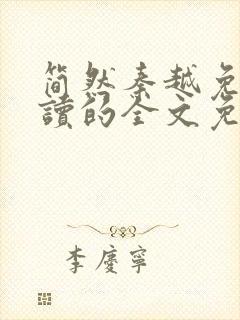 简然秦越免
讀的全文免
李慶寧